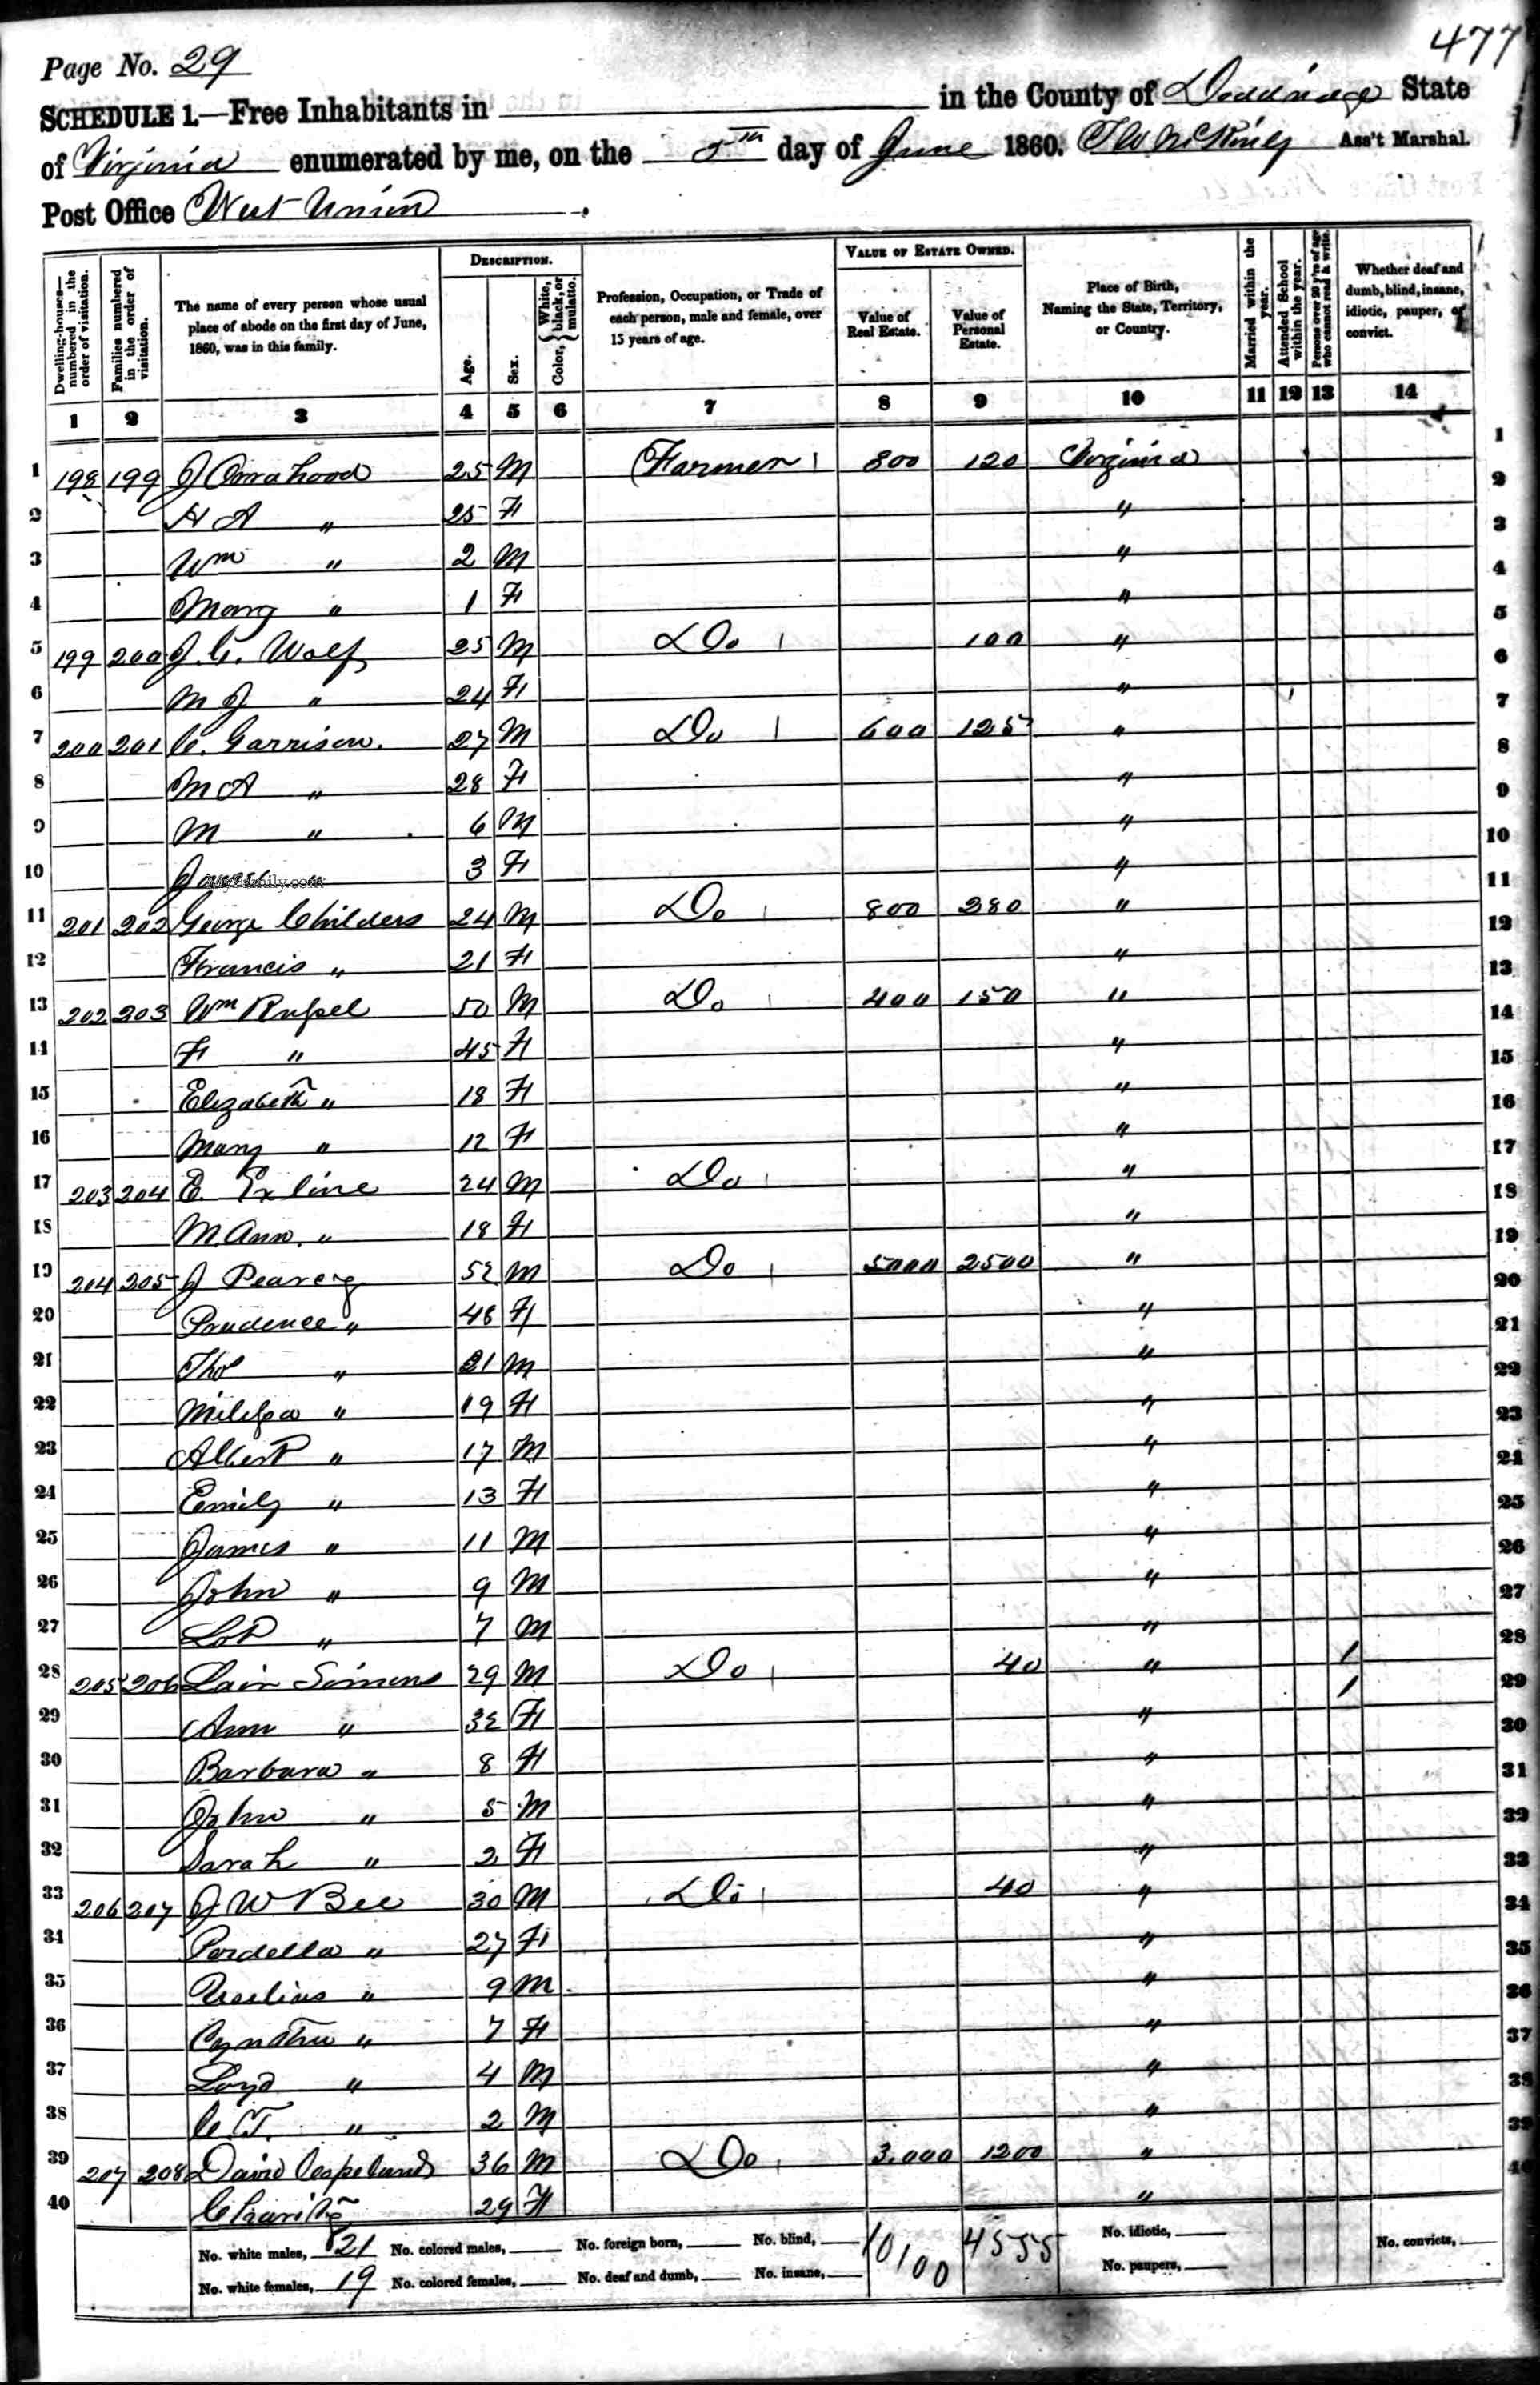 477
Page No. 29
SCHEDULE 1.—Free Inhabitants in in the County of Doddridge State
of Virginia enumerated by me, on the 5th day of June 1860. Ass't Marshal.
Post Office West Union
DESCRIPTION. VALUE OF ESTATE OWNED.
Dwelling-houses—numbered in the order of visitation. Families numbered in the order of visitation. The name of every person whose usual place of abode on the first day of June, 1860, was in this family. Age. Sex. Color, { White, black, or mulatto. Profession, Occupation, or Trade of each person, male and female, over 15 years of age. Value of Real Estate. Value of Personal Estate. Place of Birth, Naming the State, Territory, or Country. Married within the year. Attended School within the year. Persons over 20 y'rs of age who cannot read & write. Whether deaf and dumb, blind, insane, idiotic, pauper, or convict.
1 2 3 4 5 6 7 8 9 10 11 12 13 14
1 198 199 J Omahood 25 M Farmer 800 120 Virginia 1
2 H A " 25 F " 2
3 Wm " 2 M " 3
4 Mary " 1 F " 4
5 199 200 J. G. Wolf 25 M Do 100 " 5
6 M J " 24 F " 6
7 200 201 C. Garrison. 27 M Do 600 125 " 7
8 M A " 28 F " 8
9 M " 6 M " 9
10 " 3 F " 10
MyFamily.com
11 201 202 George Childers 24 M Do 800 280 " 11
12 Francis " 21 F " 12
13 202 203 Wm Russel 50 M Do 400 150 " 13
14 F " 45 F " 14
15 Elizabeth " 18 F " 15
16 Mary " 12 F " 16
17 203 204 E. Exline 24 M Do " 17
18 M. Ann. " 18 F " 18
19 204 205 J Pearcy 52 M Do 5000 2500 " 19
20 Prudence " 48 F " 20
21 Thos " 21 M " 21
22 Milissa " 19 F " 22
23 Albert " 17 M " 23
24 Emily " 13 F " 24
25 James " 11 M " 25
26 John " 9 M " 26
27 Lot " 7 M " 27
28 205 206 Lair Simons 29 M Do 40 " 1 28
29 Ann " 32 F " 1 29
30 Barbara " 8 F " 30
31 John " 5 M " 31
32 Sarah " 2 F " 32
33 206 207 J W Bee 30 M Do 40 " 33
34 Perdella " 27 F " 34
35 " 9 M " 35
36 Cynthu " 7 F " 36
37 Loyd " 4 M " 37
38 C. T. " 2 M " 38
39 207 208 David Copeland 36 M Do 3.000 1200 " 39
40 Charity 29 F " 40
No. white males, 21 No. colored males, No. foreign born, No. blind, 10,100 4555 No. idiotic, No. convicts,
No. white females, 19 No. colored females, No. deaf and dumb, No. insane, No. paupers,